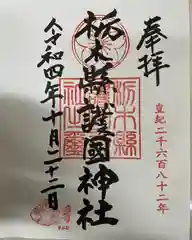 奉拝
皇紀二千六百八十二年
栃木縣護國神社
栃木縣
令和四年十月二十二日